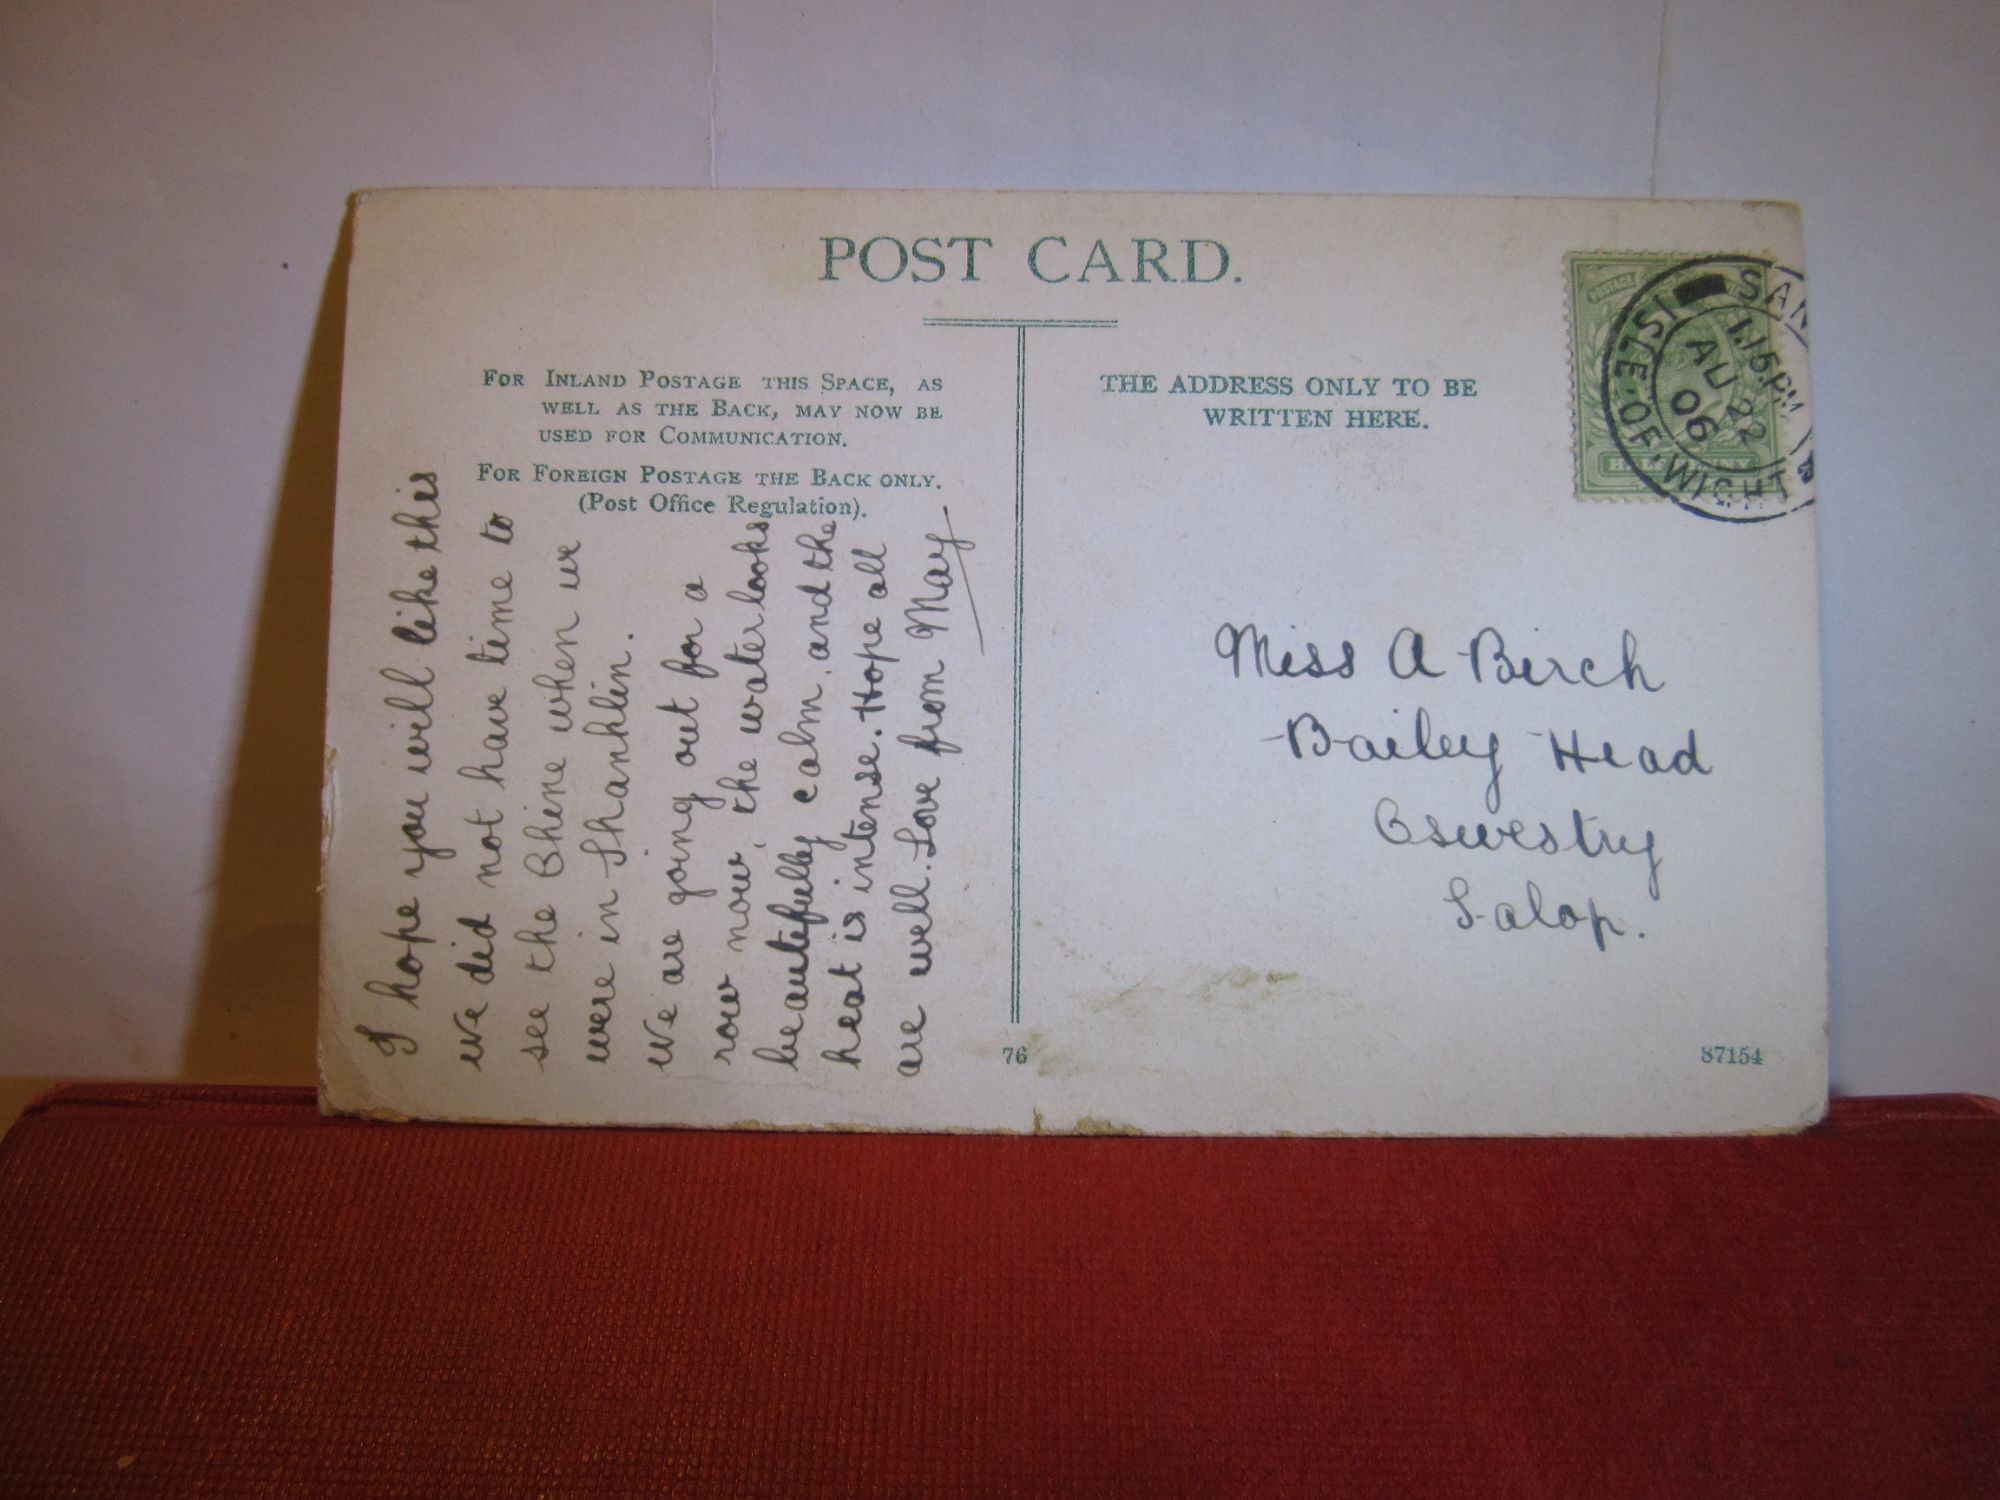 POST CARD.
FOR INLAND POSTAGE THIS SPACE, AS
WELL AS THE BACK, MAY NOW BE
USED FOR COMMUNICATION.
FOR FOREIGN POSTAGE THE BACK ONLY.
(Post Office Regulation).
I hope you will like this
we did not have time to
see the Chine when we
were in Shanklin.
We are going out for a
row now, the water looks
beautifully calm, and the
heat is intense. Hope all
are well. Love from May
THE ADDRESS ONLY TO BE
WRITTEN HERE.
POSTAGE
HALFPENNY
SAN
ISLE OF WIGHT
1.15 PM
AU 2
06
Miss A Birch
Bailey Head
Oswestry
Salop.
76
87154